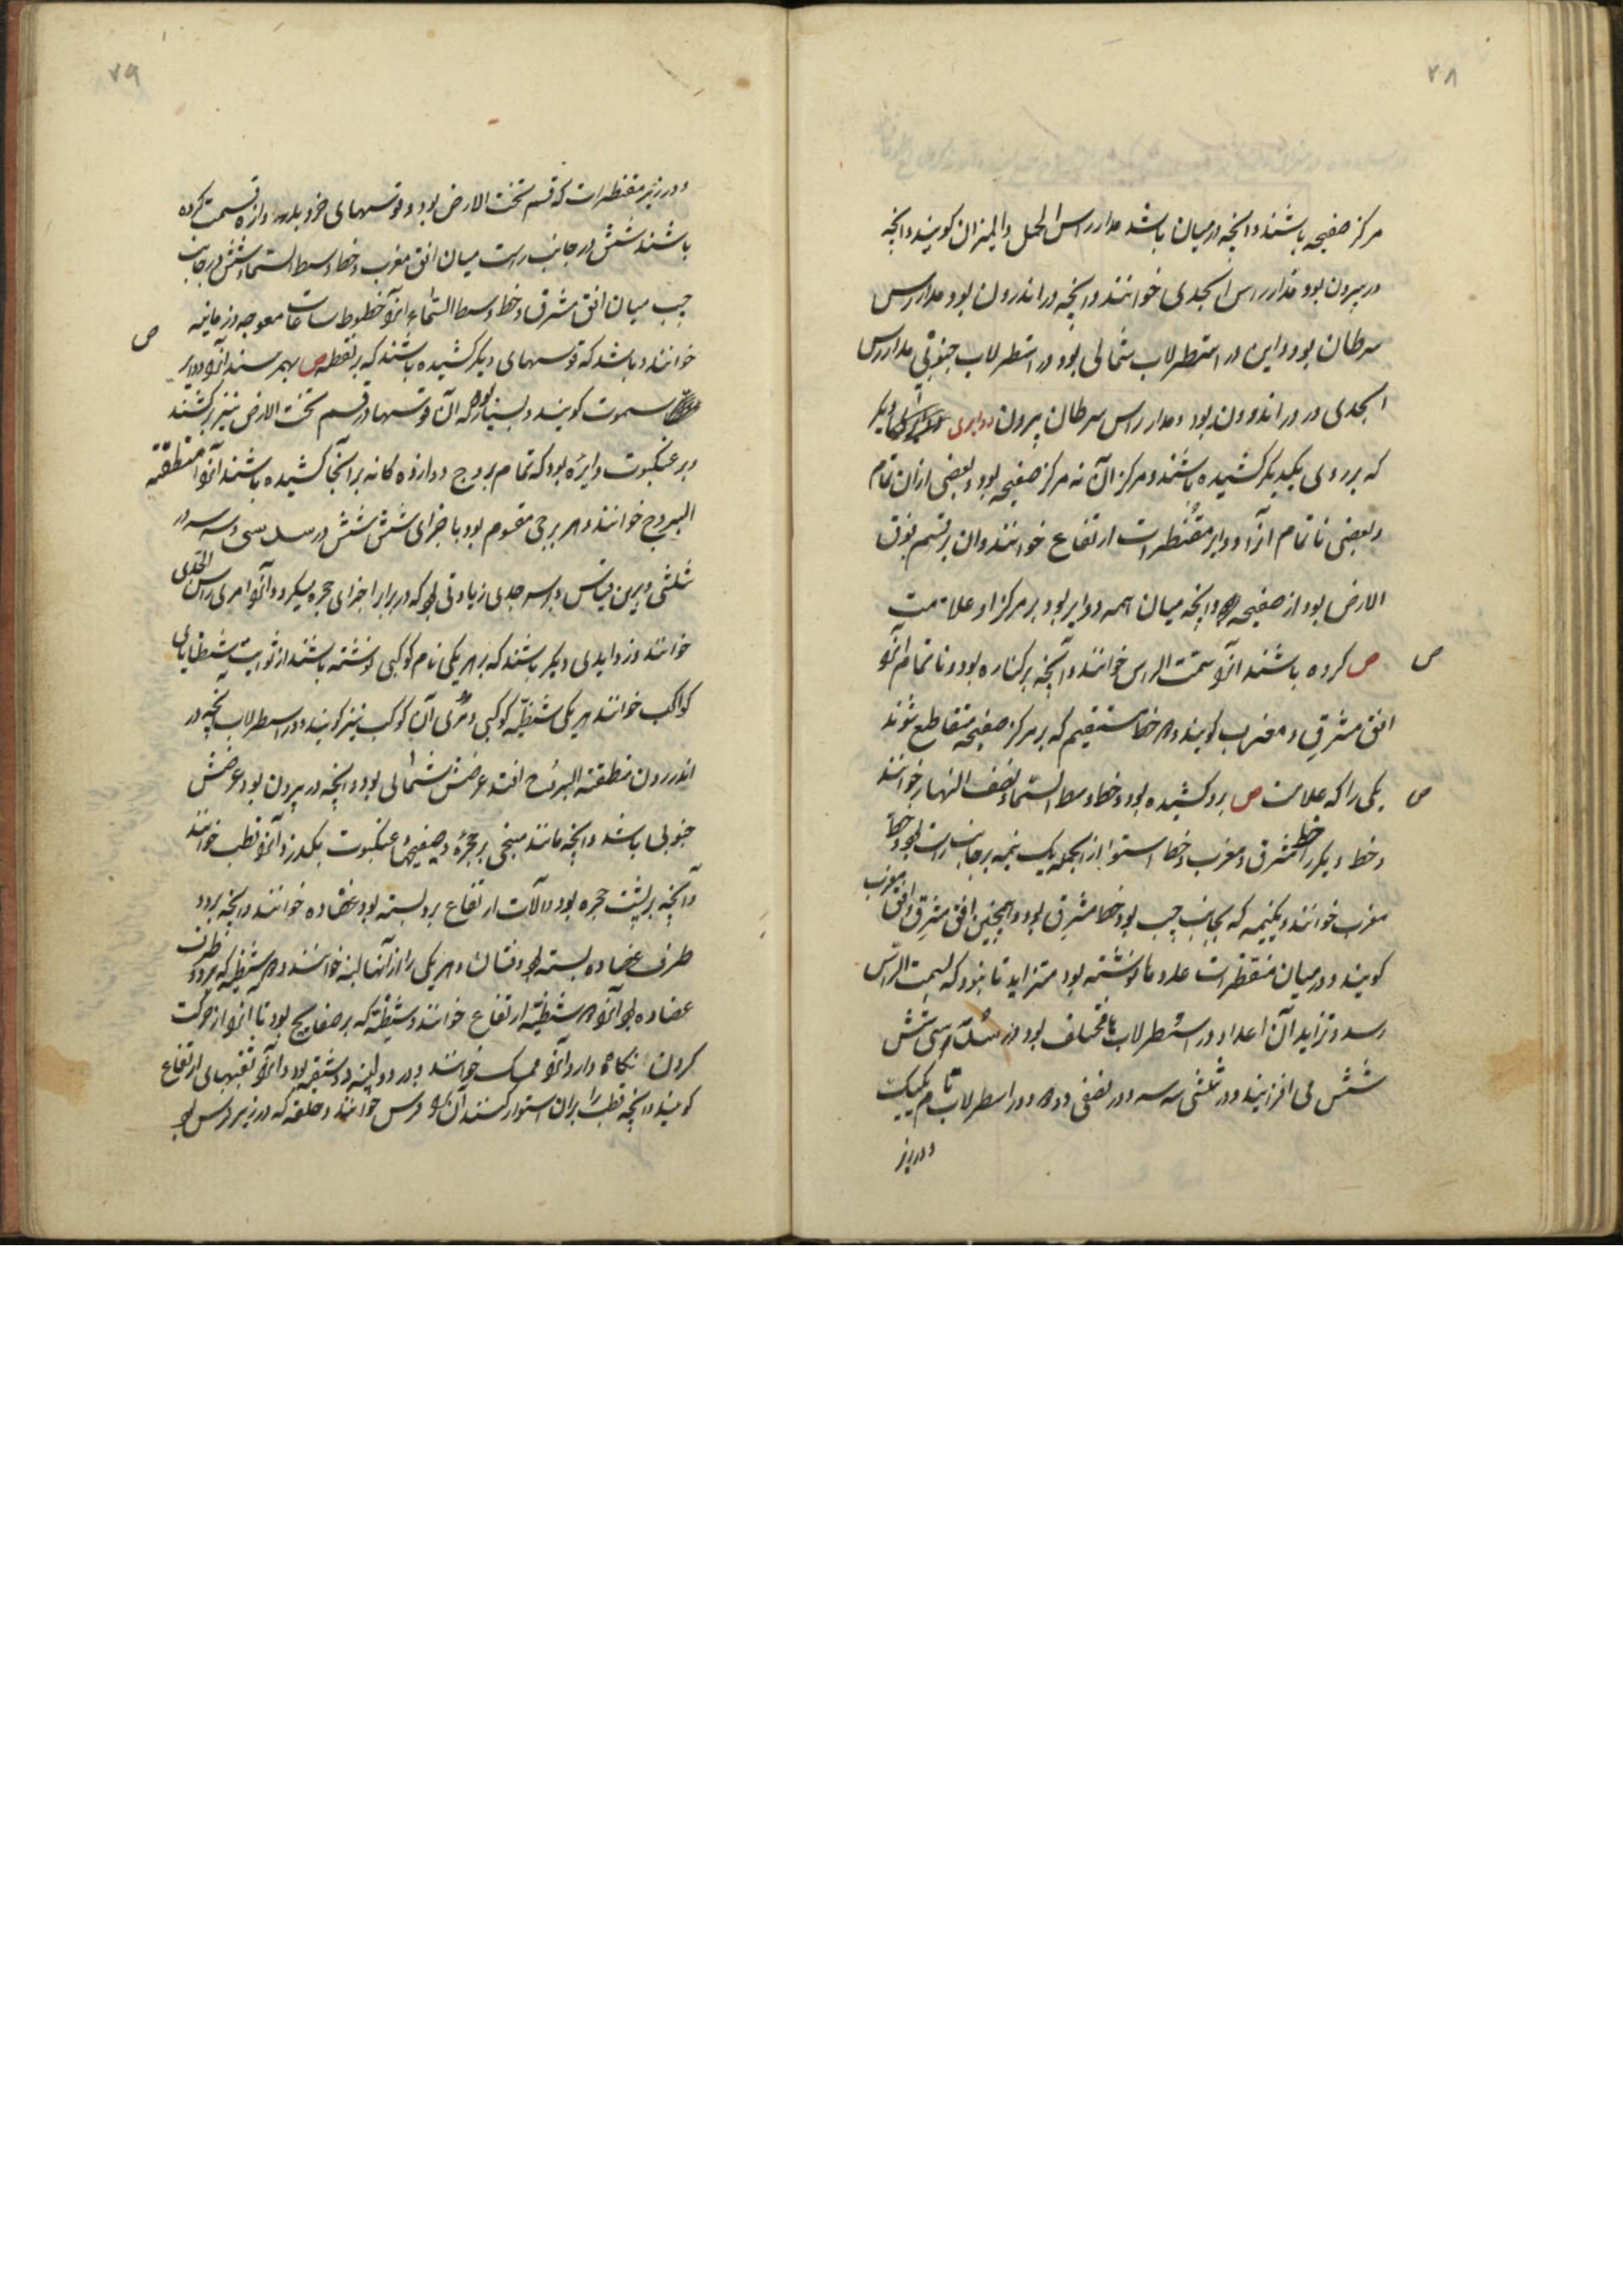 ۲۸
مرکز صفیحه باشند و آنچه در میان باشد مدار راس الحمل و المیزان کویند و آنچه
در بیرون بود مدار راس الجدی خوانند و آنچه در اندرون بود مدار راس
سرطان بود و این در اسطرلاب شمالی بود و در اسطرلاب جنوبی مدار راس
الجدی در اندرون بود و مدار راس سرطان بیرون دوایری دیکر
که بر روی یکدیکر کشیده باشند و مرکز آن نه مرکز صفیحه بود و بعضی ازان تمام
و بعضی ناتمام آنرا دوایر مقنطرات ارتفاع خوانند وان بر قسم فوق
الارض بود از صفیحه و آنچه میان همه دوایر بود بر مرکز او علامت
ص کرده باشند آنرا سمت الراس خوانند و آنچه بر کناره بود و ناتمام آنرا
ص
افق مشرق و مغرب کویند و دو خط مستقیم که بر مرکز صفیحه متقاطع شوند
یکی را که علامت ص برو کشیده بود و خط وسط السما و نصف النهار خوانند
ص
و خط دیکر را خط مشرق و مغرب و خط استوا از آنجمله یک نیمه بر جانب راست بود خط
مغرب خوانند و یکنیمه که بجانب چپ بود خط مشرق بود و همچنین افق مشرق و افق مغرب
کویند و در میان مقنطرات عدد ها نوشته بود متزاید تا نود که بسمت الراس
رسد و تزاید آن اعداد در اسطرلاب ها مختلف بود در سدسی شش
شش می افزایند و در ثلثی سه سه و در نصفی دو دو و در اسطرلاب تام یکیک
و در زیر
۲۹
و در زیر مقنطرات که قسم تحت الارض بود و قوسهای خرد بدوازده قسمت کرده
باشند شش در جانب راست میان افق مغرب و خط وسط السما و شش در جانب
چپ میان افق مشرق و خط وسط السماء آنرا خطوط ساعات معوجه و زمانیه
خوانند و باشد که قوسهای دیکر کشیده باشند که بر نقطه ص بهم رسند آنرا دوایر
ص
سموت کویند و بسیار بود که آن قوسها در قسم تحت الارض نیز برکشند
و بر عنکبوت دایره بود که تمام بروج دوازده کانه بر آنجا کشیده باشند آنرا منطقة
البروج خوانند و هر برجی مقسوم بود باجزای شش شش در سدسی و سه سه در
ثلثی و برین قیاس و بر سر جدی زیادتی بود که در برابر اجزای حجره میکردد آنرا مری راس الجدی
خوانند و زوایدی دیکر باشند که بر هر یکی نام کوکبی نوشته باشند از ثوابت شظایای
کواکب خوانند هر یکی شظیه کوکبی و مری آن کوکب نیز کویند و در اسطرلاب آنچه در
اندرون منطقة البروج افتد عرضش شمالی بود و آنچه در بیرون بود عرضش
جنوبی باشد و آنچه مانند میخی بر حجره و صفیحها و عنکبوت بکذرد آنرا قطب خوانند
و آنچه بر پشت حجره بود و آلات ارتفاع برو بسته بود عضاده خوانند و آنچه بر دو
طرف عضاده بسته بود و نشان و هر یکی را از آنها لبنه خوانند و دو شظیه که بر دو طرف
عضاده بود آنرا دو شظیه ارتفاع خوانند و شظیه که بر صفایح بود تا آنرا از حرکت
کردن نکاه دارد آنرا ممسک خوانند و در دو لبنه دو ثقبه بود و آنرا ثقبهای ارتفاع
کویند و آنچه قطب را بران استوار کنند آنرا فرس خوانند و حلقه که در زیر فرس بود